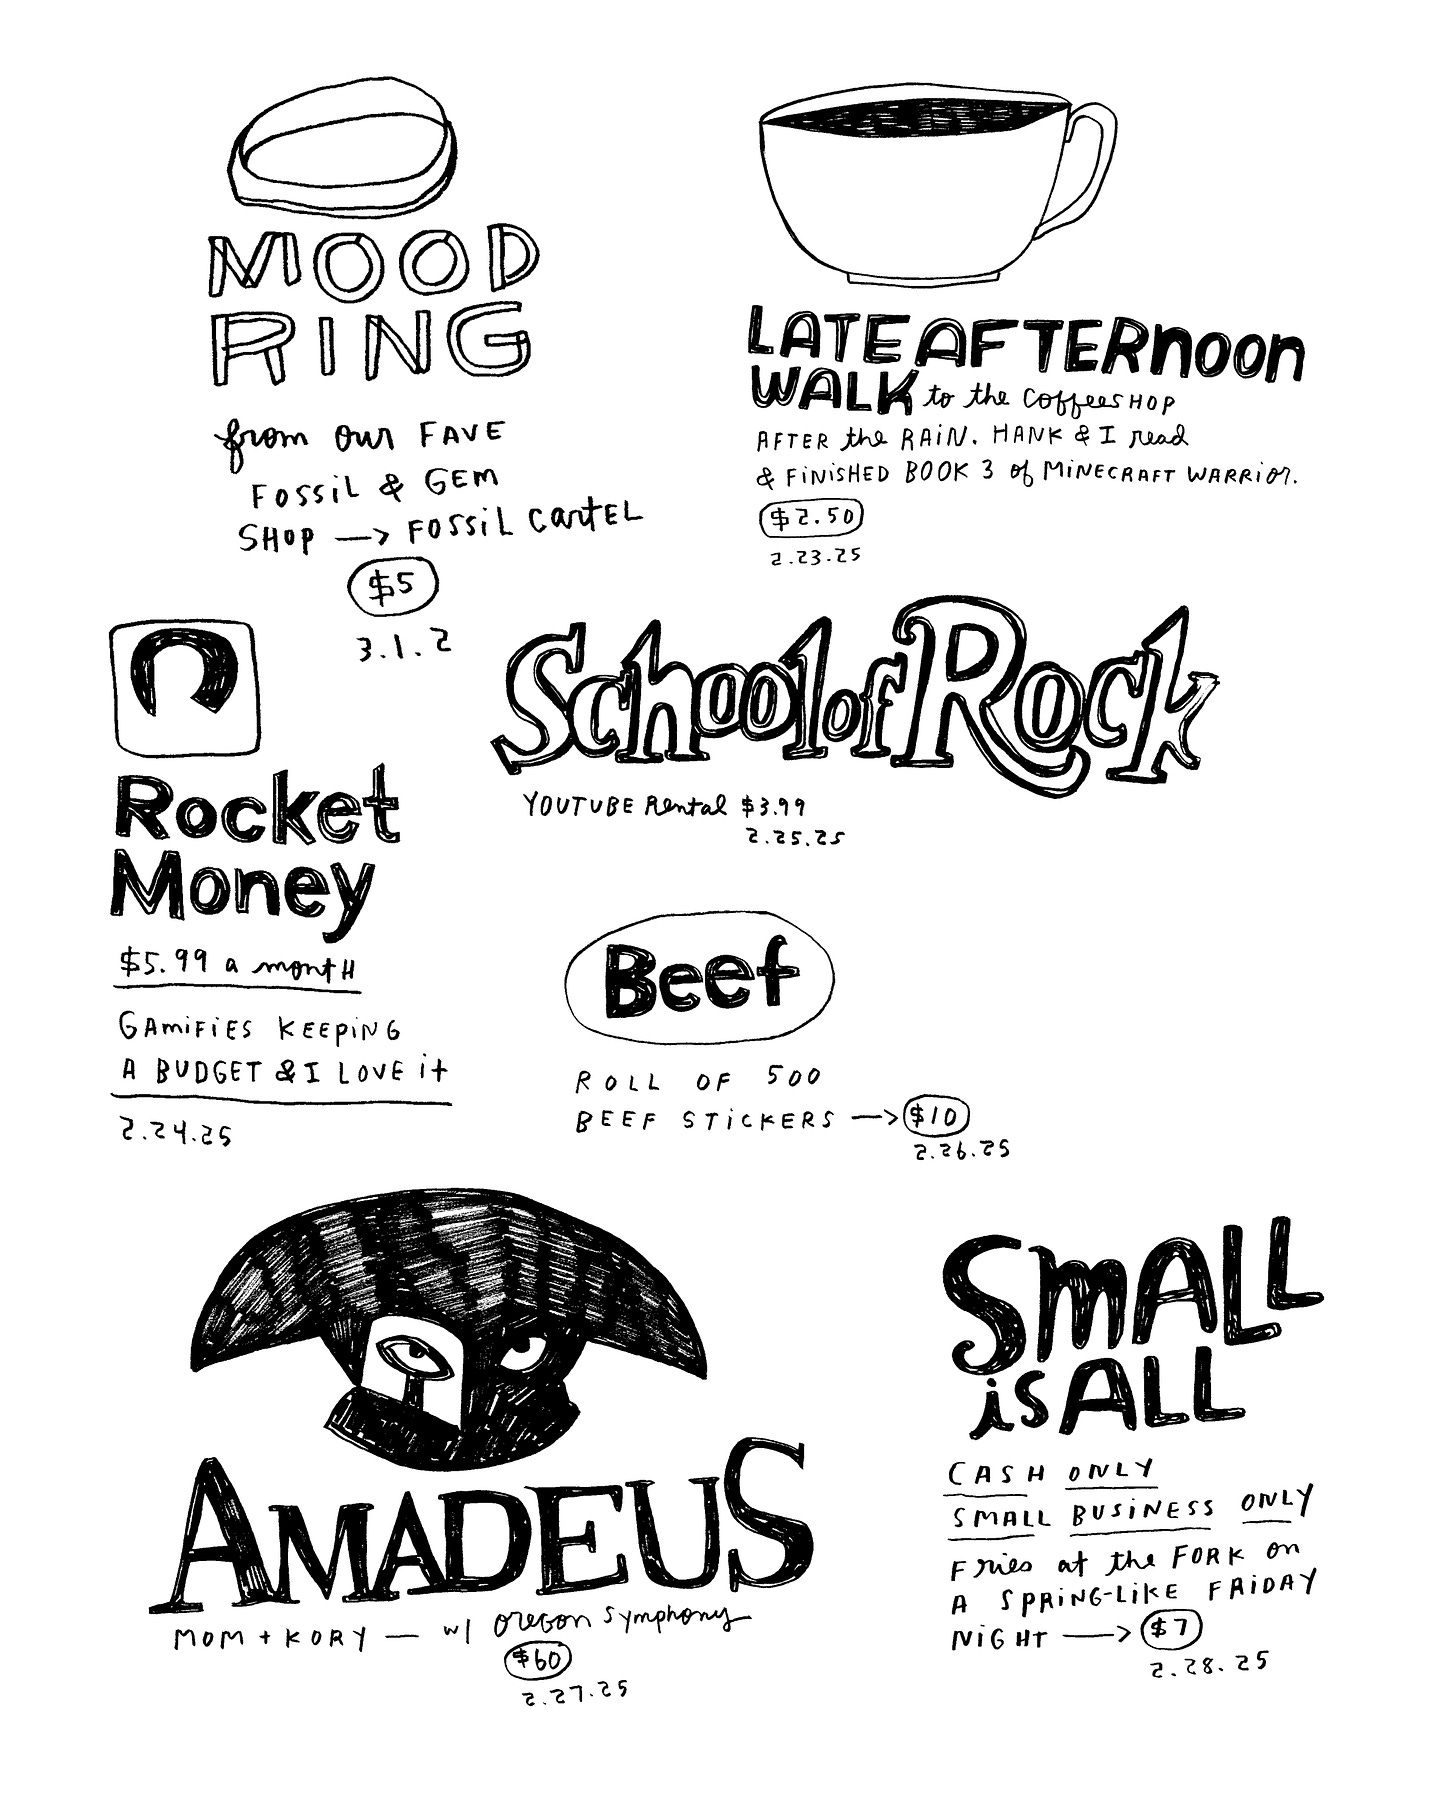 MOOD
RING
from our FAVE
FOSSIL & GEM
SHOP —> FOSSIL CARTEL
$5
3.1.2
LATE AFTERNOON
WALK to the COFFEESHOP
AFTER the RAIN. HANK & I read
& FINISHED BOOK 3 of MINECRAFT WARRIOR.
$2.50
2.23.25
Rocket
Money
$5.99 a month
GAMIFIES KEEPING
A BUDGET & I LOVE it
2.24.25
School of Rock
YOUTUBE Rental $3.99
2.25.25
Beef
ROLL OF 500
BEEF STICKERS —> $10
2.26.25
AMADEUS
MOM + KORY — w/ Oregon Symphony
$60
2.27.25
SMALL
is ALL
CASH ONLY
SMALL BUSINESS ONLY
Fries at the FORK on
A SPRING-LIKE FRIDAY
NIGHT —> $7
2.28.25